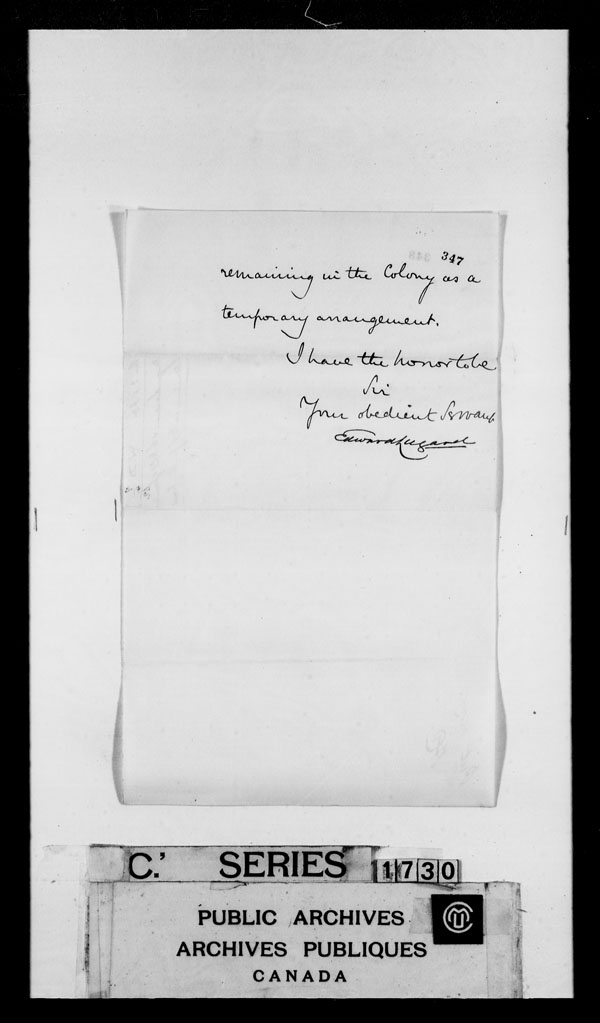 347
remaining in the Colony as a
temporary arrangement.
I have the honor to be
Sir
Your obedient Servant
Edward Lugard
C.' SERIES 1730
PUBLIC ARCHIVES
ARCHIVES PUBLIQUES
CANADA